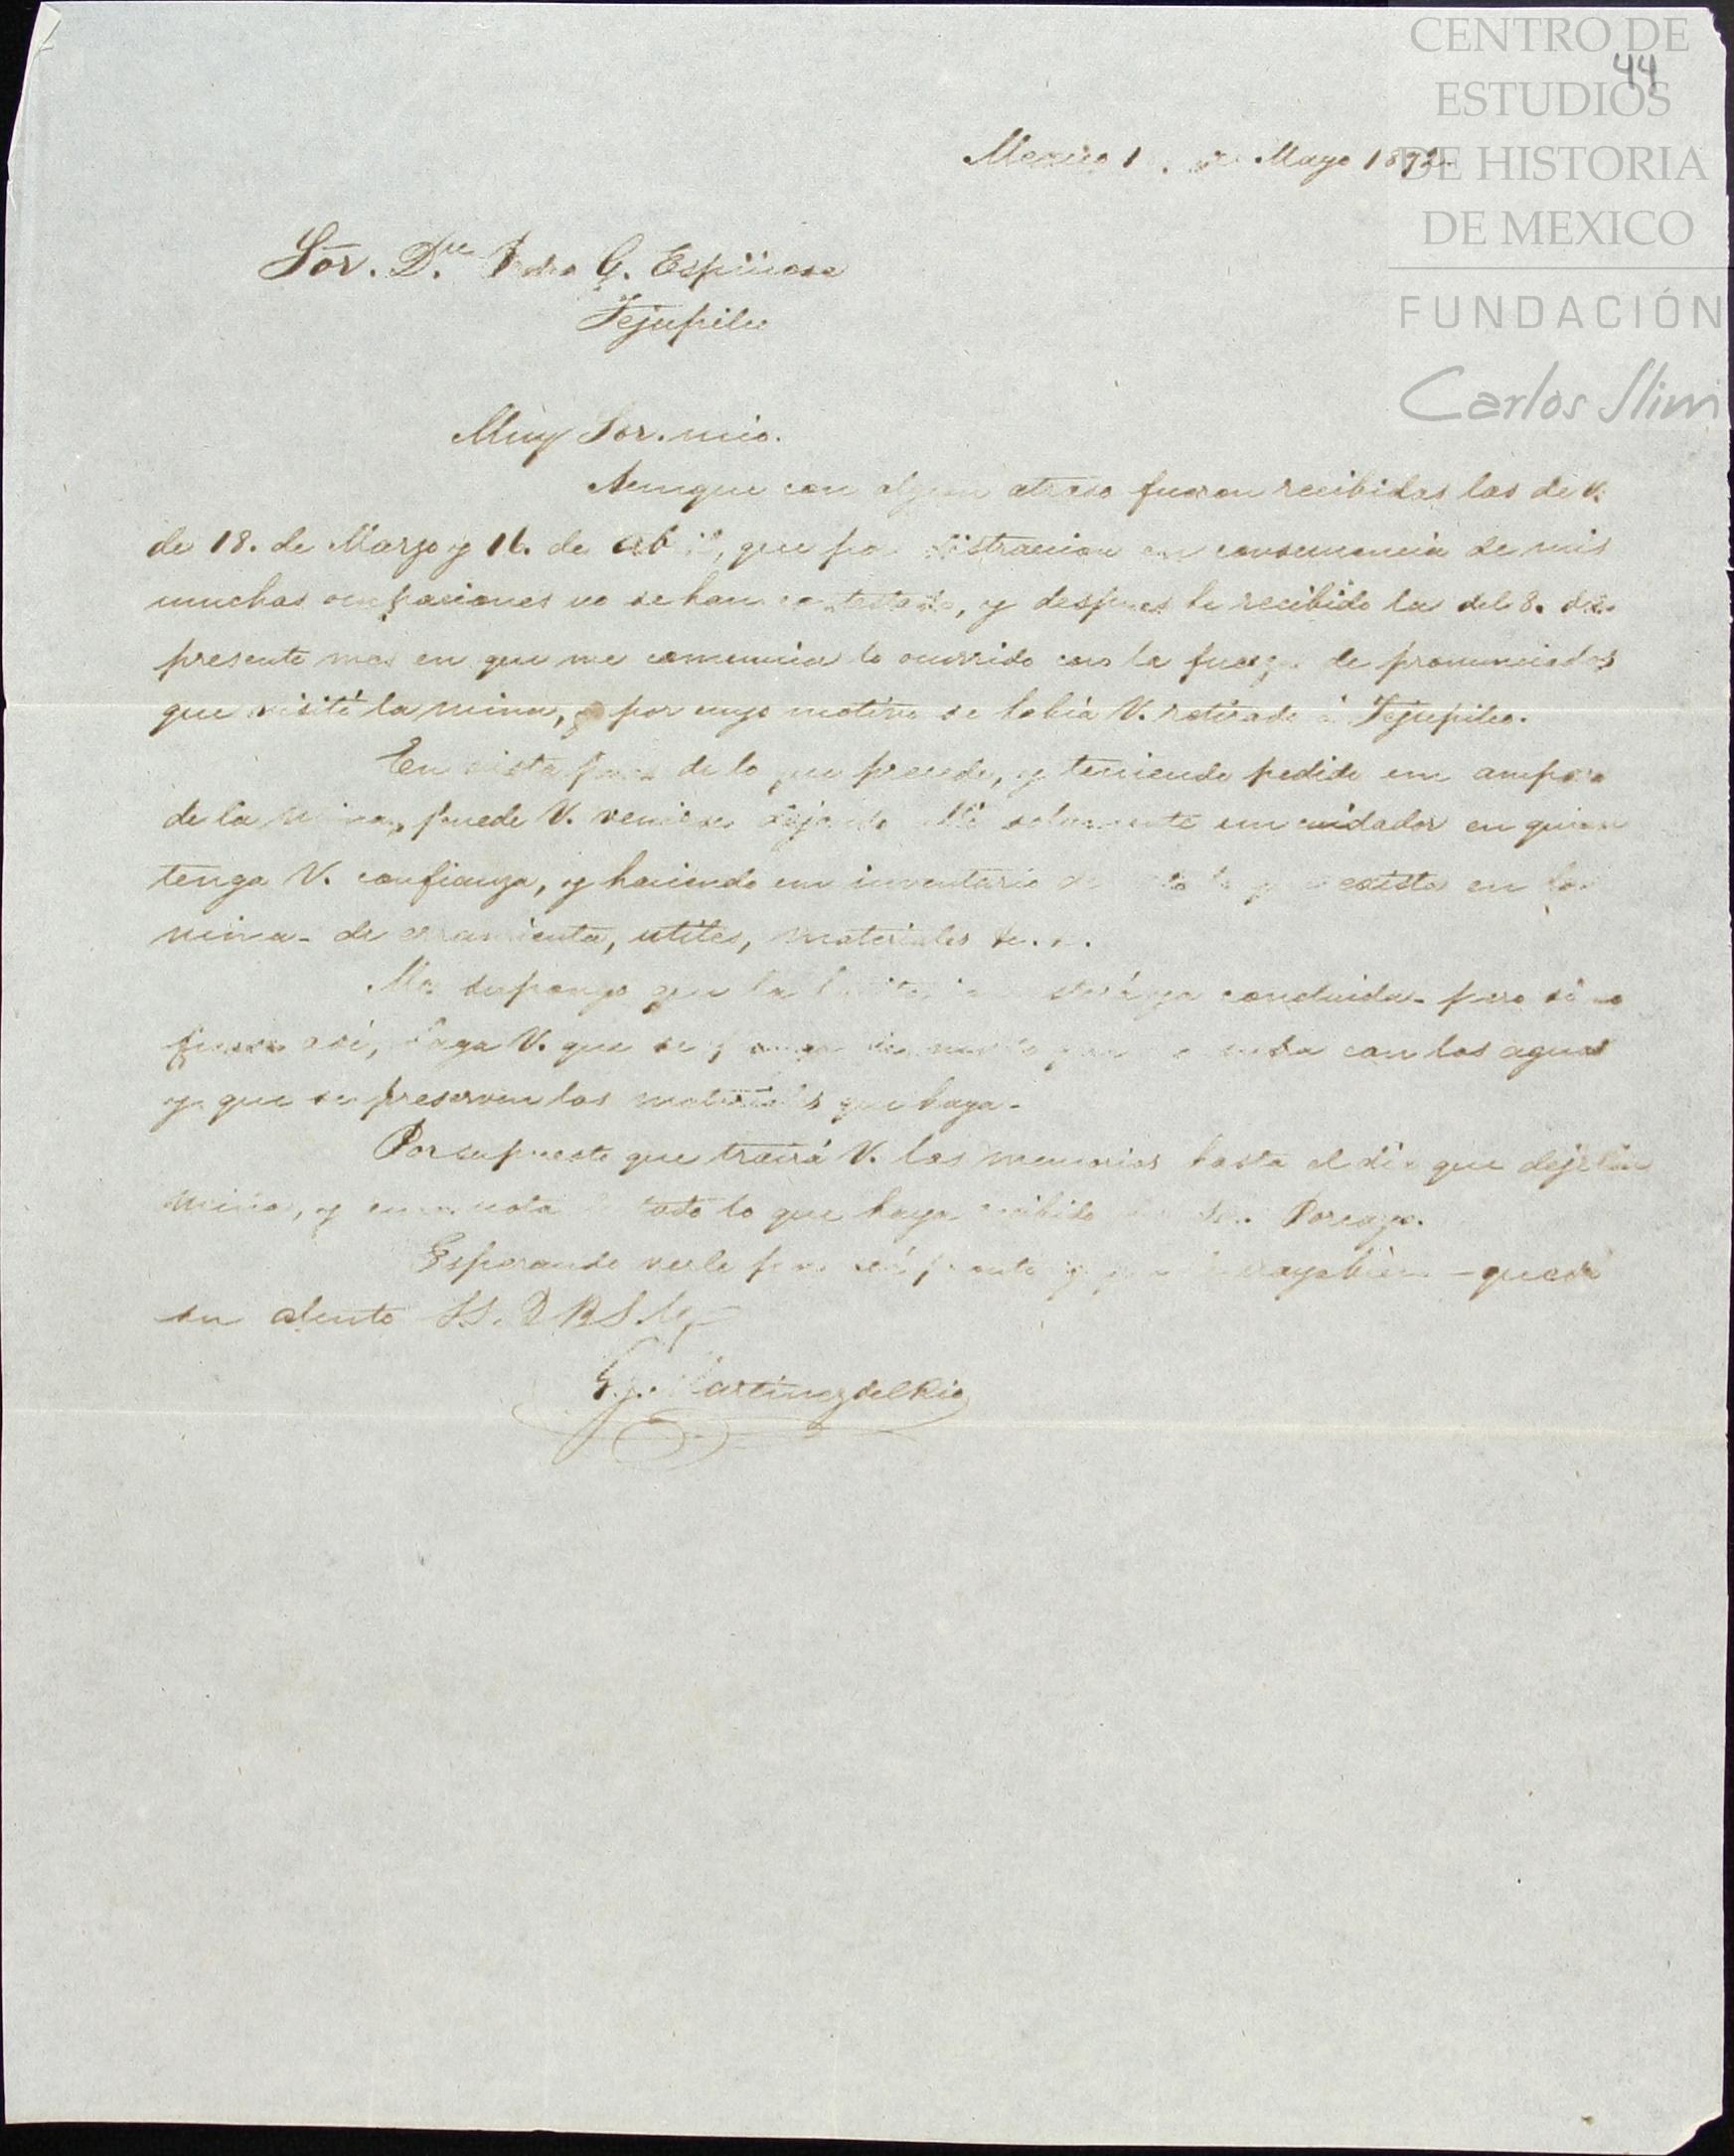 CENTRO DE
44
ESTUDIOS
DE HISTORIA
DE MEXICO
FUNDACIÓN
Carlos Slim
Mexico 1 de Mayo 187
Sõr. D.n Pedro G. Espinosa
Tejupilco
Muy Sor. mio.
Aunque con algun atraso fueron recibidas las de V.
de 18. de Marzo y 16. de Abril, que por distracion en consecuencia de mis
muchas ocupaciones no se han contestado, y despues he recibido la del 8. del
presente mes en que me comunica lo ocurrido con la fuerza de pronunciados
que visitó la mina, y por cuyo motivo se había V. retirado á Tejupilco.
En vista pues de lo que precede, y teniendo pedido un amparo
de la mina, puede V. venirse dejando allí solamente un cuidador en quien
tenga V. confianza, y haciendo un inventario de todo lo que existe en la
mina - de erramienta, utiles, materiales &c.
Me supongo que la estará ya concluida - pero si no
fuere asi, haga V. que se ponga con las aguas
y que se preserven los materiales que haya -
Por supuesto que traerá V. las memorias hasta el dia que deje la
mina, y una nota de todo lo que haya recibido Porcayo.
Esperando verle por acá pronto y que le vaya bien - queda
su atento SS. Q B S. M.
Martinez del Rio